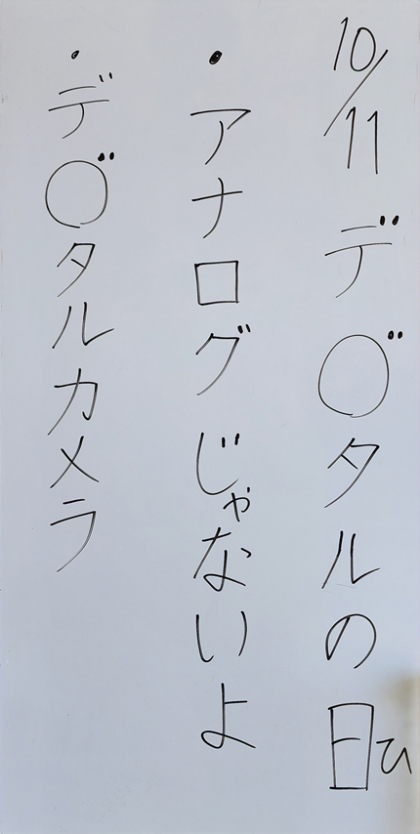 10/11 デ○゛タルの日ひ
・アナログじゃないよ
・デ○゛タルカメラ